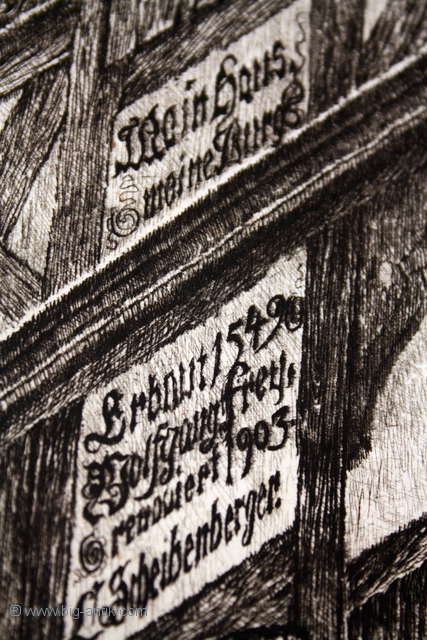 Mein Haus,
meine Burg
Erbaut 1549
Wolfgang Frey.
renoviert 1903
Scheibenberger.